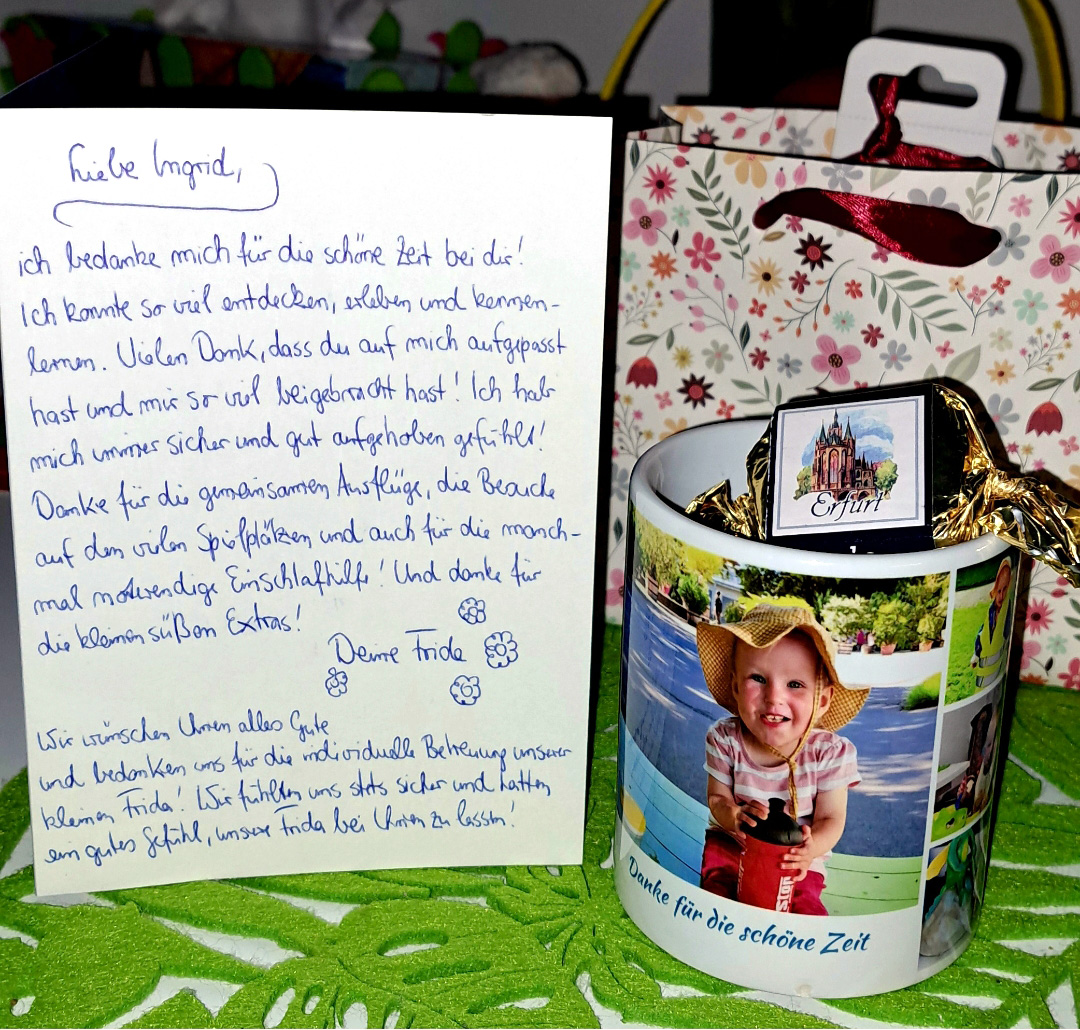 Liebe Ingrid,
ich bedanke mich für die schöne Zeit bei dir!
Ich konnte so viel entdecken, erleben und kennen-
lernen. Vielen Dank, dass du auf mich aufgepasst
hast und mir so viel beigebracht hast! Ich hab
mich immer sicher und gut aufgehoben gefühlt!
Danke für die gemeinsamen Ausflüge, die Besuche
auf den vielen Spielplätzen und auch für die manch-
mal notwendige Einschlafhilfe! Und danke für
die kleinen süßen Extras!
Deine Frida
Wir wünschen Ihnen alles Gute
und bedanken uns für die individuelle Betreuung unserer
kleinen Frida! Wir fühlten uns stets sicher und hatten
ein gutes Gefühl, unsere Frida bei Ihnen zu lassen!
Erfurt
Danke für die schöne Zeit